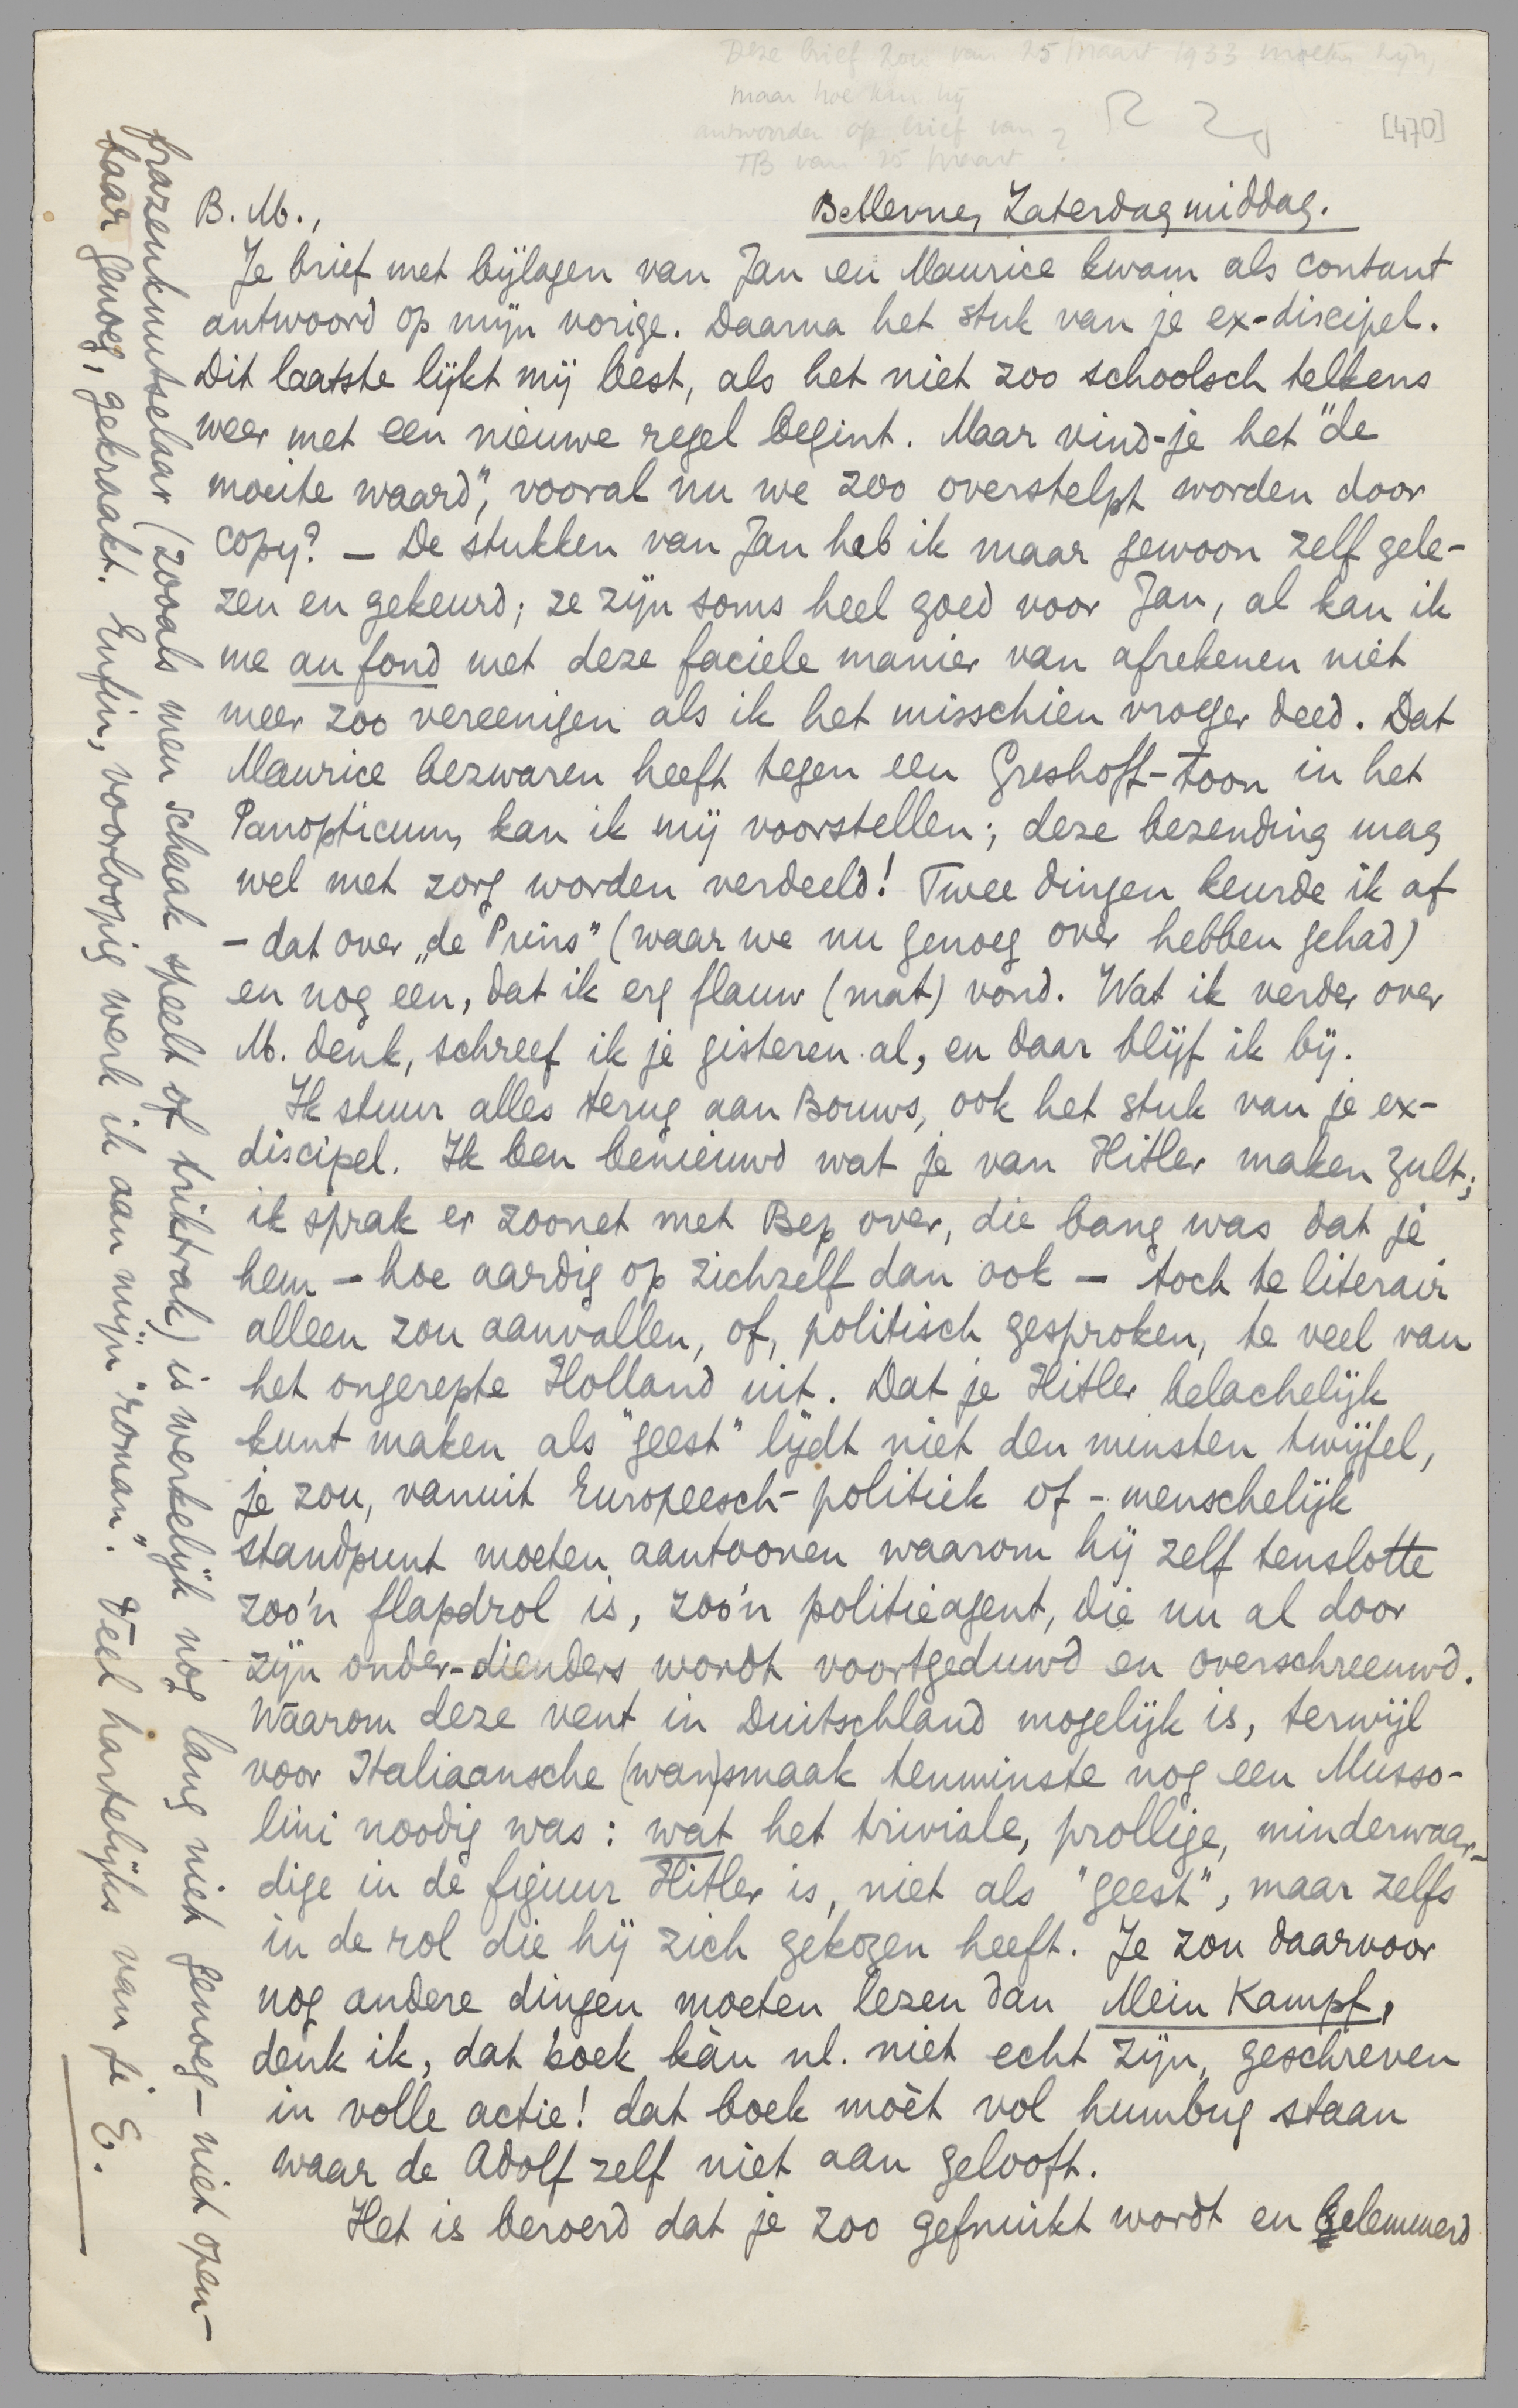 Deze brief zou van 25 maart 1933 moeten zijn,
maar hoe kan hij
antwoorden op brief van
TB van 25 maart ?
[470]
B. M.,
Bellevue, Zaterdagmiddag.
Je brief met bijlagen van Jan en Maurice kwam als contant
antwoord op mijn vorige. Daarna het stuk van je ex-discipel.
Dit laatste lijkt mij best, als het niet zoo schoolsch telkens
weer met een nieuwe regel begint. Maar vind-je het "de
moeite waard", vooral nu we zoo overstelpt worden door
copy? — De stukken van Jan heb ik maar gewoon zelf gele-
zen en gekeurd; ze zijn soms heel goed voor Jan, al kan ik
me au fond met deze faciele manier van afrekenen niet
meer zoo vereenigen als ik het misschien vroeger deed. Dat
Maurice bezwaren heeft tegen een Greshoff-toon in het
Panopticum, kan ik mij voorstellen; deze bezending mag
wel met zorg worden verdeeld! Twee dingen keurde ik af
– dat over „de Prins" (waar we nu genoeg over hebben gehad)
en nog een, dat ik erg flauw (mat) vond. Wat ik verder over
M. denk, schreef ik je gisteren al, en daar blijf ik bij.
Ik stuur alles terug aan Bouws, ook het stuk van je ex-
discipel. Ik ben benieuwd wat je van Hitler maken zult;
ik sprak er zoonet met Bep over, die bang was dat je
hem – hoe aardig op zichzelf dan ook – toch te literair
alleen zou aanvallen, of, politisch gesproken, te veel van
het ongerepte Holland uit. Dat je Hitler belachelijk
kunt maken als "geest" lijdt niet den minsten twijfel,
je zou, vanuit Europeesch-politiek of -menschelijk
standpunt moeten aantoonen waarom hij zelf tenslotte
zoo'n flapdrol is, zoo'n politieagent, die nu al door
zijn onder-dienders wordt voortgeduwd en overschreeuwd.
Waarom deze vent in Duitschland mogelijk is, terwijl
voor Italiaansche (wan)smaak tenminste nog een Musso-
lini noodig was: wat het triviale, prollige, minderwaar-
dige in de figuur Hitler is, niet als "geest", maar zelfs
in de rol die hij zich gekozen heeft. Je zou daarvoor
nog andere dingen moeten lezen dan Mein Kampf,
denk ik, dat boek kàn nl. niet echt zijn, geschreven
in volle actie! dat boek moèt vol humbug staan
waar de Adolf zelf niet aan gelooft.
Het is beroerd dat je zoo gefnuikt wordt en belemmerd
frazenknutselaar (zooals men schaak speelt of triktrak) is werkelijk nog lang niet genoeg – niet open-
baar genoeg, gekraakt. Enfin, voorloopig werk ik aan mijn "roman". Veel hartelijks van je E.